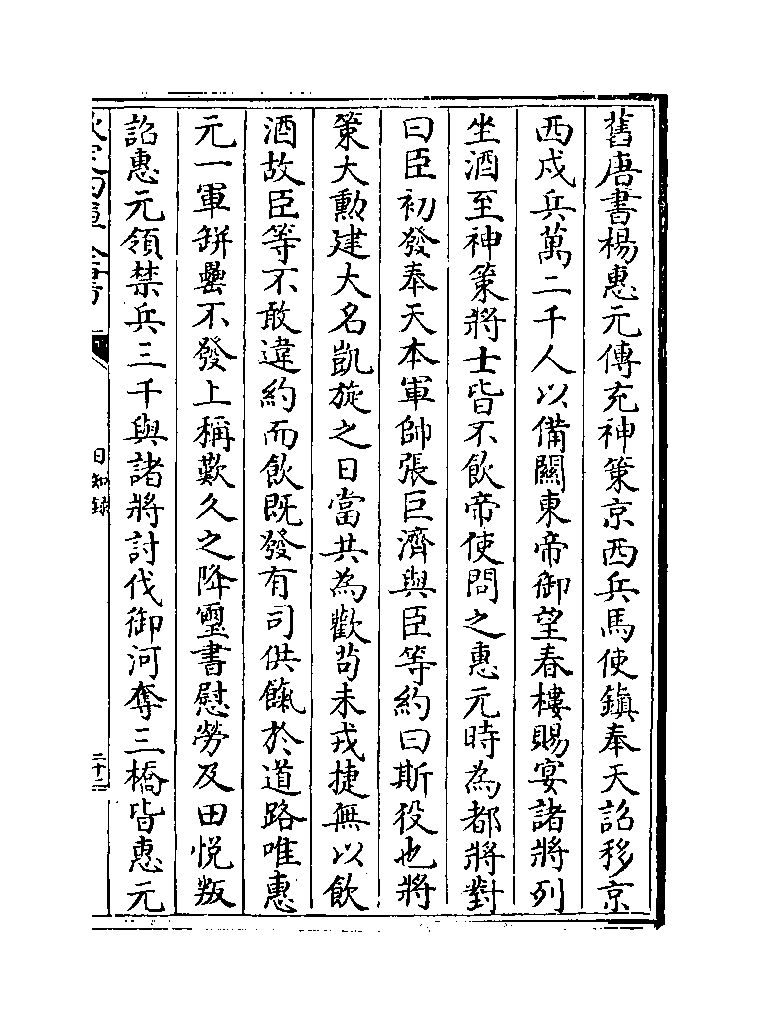 舊唐書楊惠元傳充神策京西兵馬使鎮奉天詔移京
西戍兵萬二千人以備關東帝御望春樓賜宴諸將列
坐酒至神策將士皆不飲帝使問之惠元時為都將對
曰臣初發奉天本軍帥張巨濟與臣等約曰斯役也將
策大勲建大名凱旋之日當共為歡茍未戎捷無以飲
酒故臣等不敢違約而飲既發有司供餼於道路唯惠
元一軍缾罍不發上稱歎久之降璽書慰勞及田悅叛
詔惠元領禁兵三千與諸將討伐御河奪三橋皆惠元
日知録